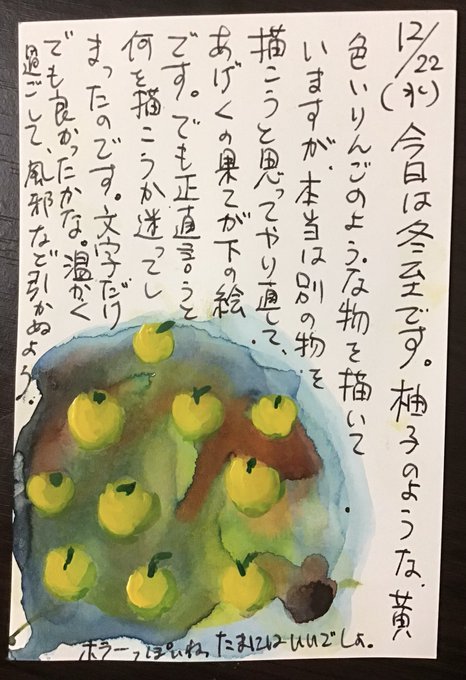 12/22(水)今日は冬至です。柚子のような、黄
色いりんごのような物を描いて
いますが、本当は別の物を
描こうと思ってやり直して、
あげくの果てが下の絵
です。でも正直言うと
何を描こうか迷ってし
まったのです。文字だけ
でも良かったかな。温かく
過ごして、風邪など引かぬよう。
ホラーっぽいねっ たまにはいいでしょ。